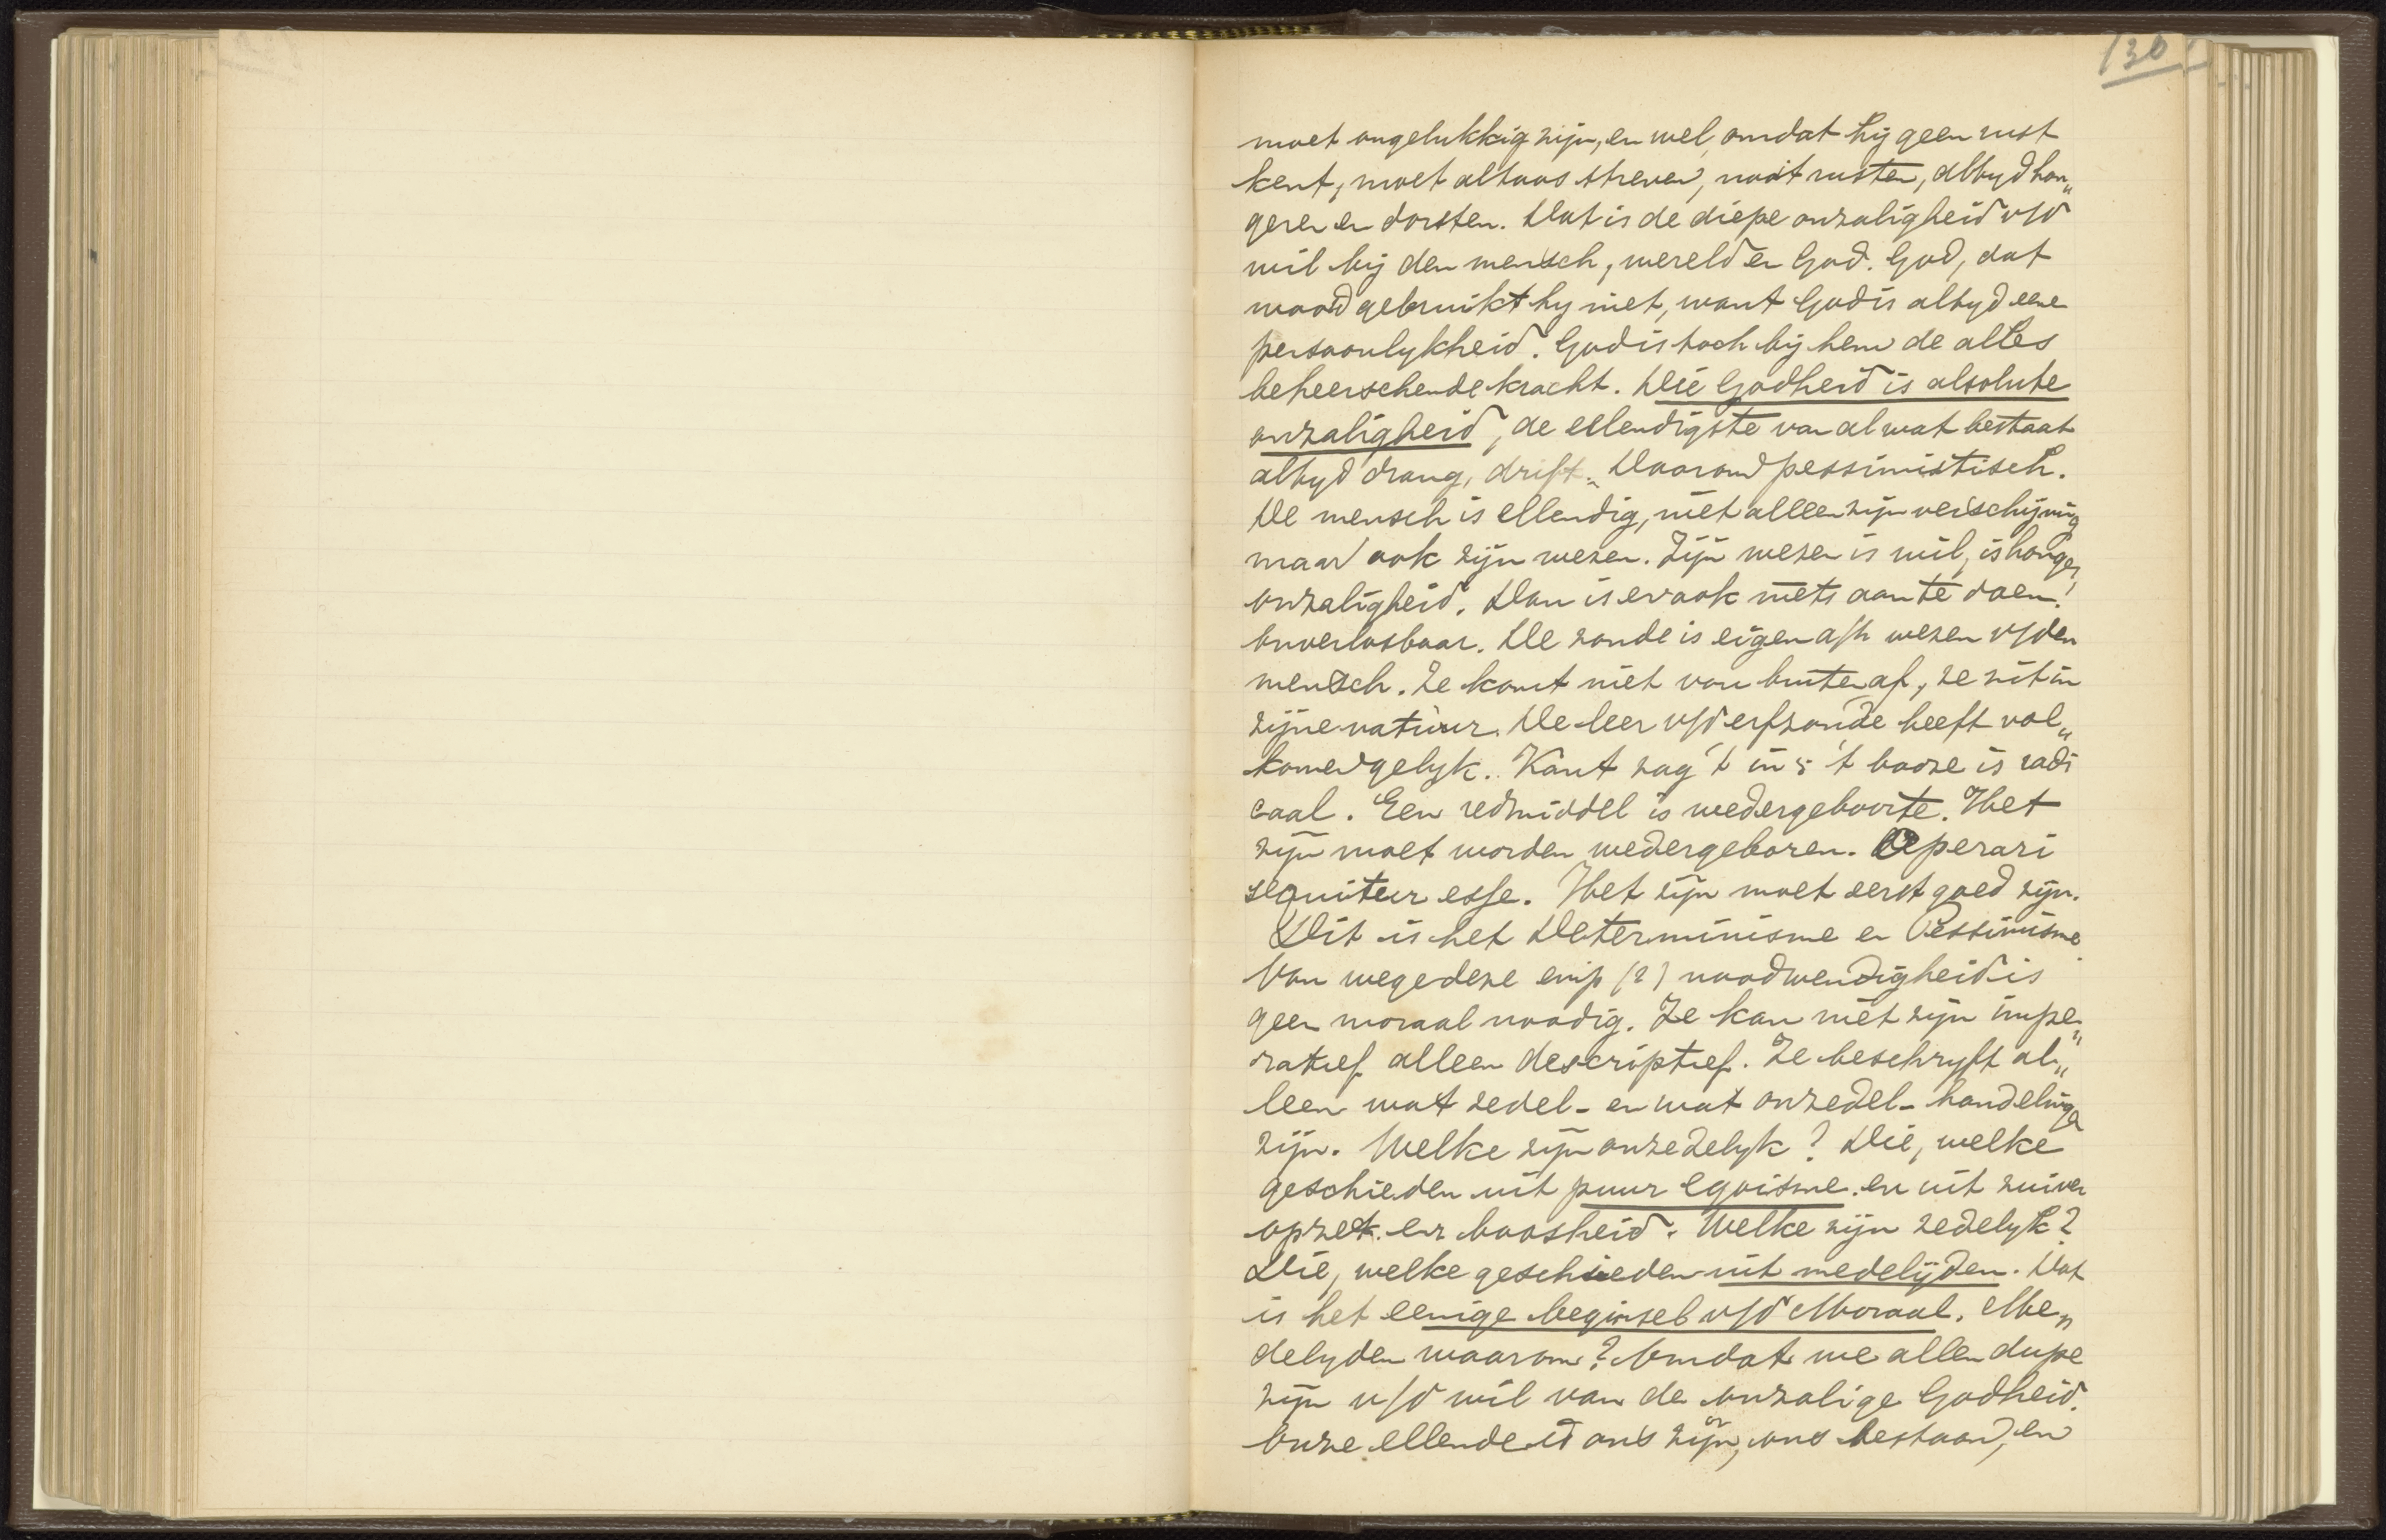 130
moet ongelukkig zijn, en wel, omdat hij geen rust
kent, moet altoos streven, nooit rusten, altyd hon„
geren en dorsten. Dat is de diepe onzaligheid v/d
wil bij den mensch, wereld en God. God, dat
woord gebruikt hy niet, want God is altyd eene
persoonlykheid. God is toch bij hem de alles
beheerschende kracht. Die Godheid is absolute
onzaligheid, de ellendigste van al wat bestaat
altyd drang, drift. Daarom pessimistisch.
De mensch is ellendig, niet alleen zijn verschijning
maar ook zijn wezen. Zijn wezen is wil, is honger,
onzaligheid. Dan is er ook niets aan te doen!
onverlosbaar. De zonde is eigen a/h wezen v/den
mensch. Ze komt niet van buiten af, ze zit in
zijne natuur. De leer v/d erfzonde heeft vol„
komen gelyk. Kant zag 't in; 't booze is radi
caal. Een redmiddel is wedergeboorte. Het
zijn moet worden wedergeboren. Operari
sequitur esse. Het zijn moet eerst goed zijn.
Dit is het Determinisme en Pessimisme.
Van wege deze emp (?) noodwendigheid is
geen moraal noodig. Ze kan niet zijn impe„
ratief alleen descriptief. Ze beschryft al„
leen wat zedel- en wat onzedel- handelingen
zijn. Welke zijn onzedelyk? Die, welke
geschieden uit puur egoisme en uit zuiver
opzet en boosheid. Welke zijn zedelyk?
Die, welke geschieden uit medelijden. Dat
is het eenige beginsel v/d Moraal. Me„
delyden waarom? Omdat we allen dupe
zijn v/d wil van de onzalige Godheid.
Onze ellende is ons zijn, ons bestaan, en